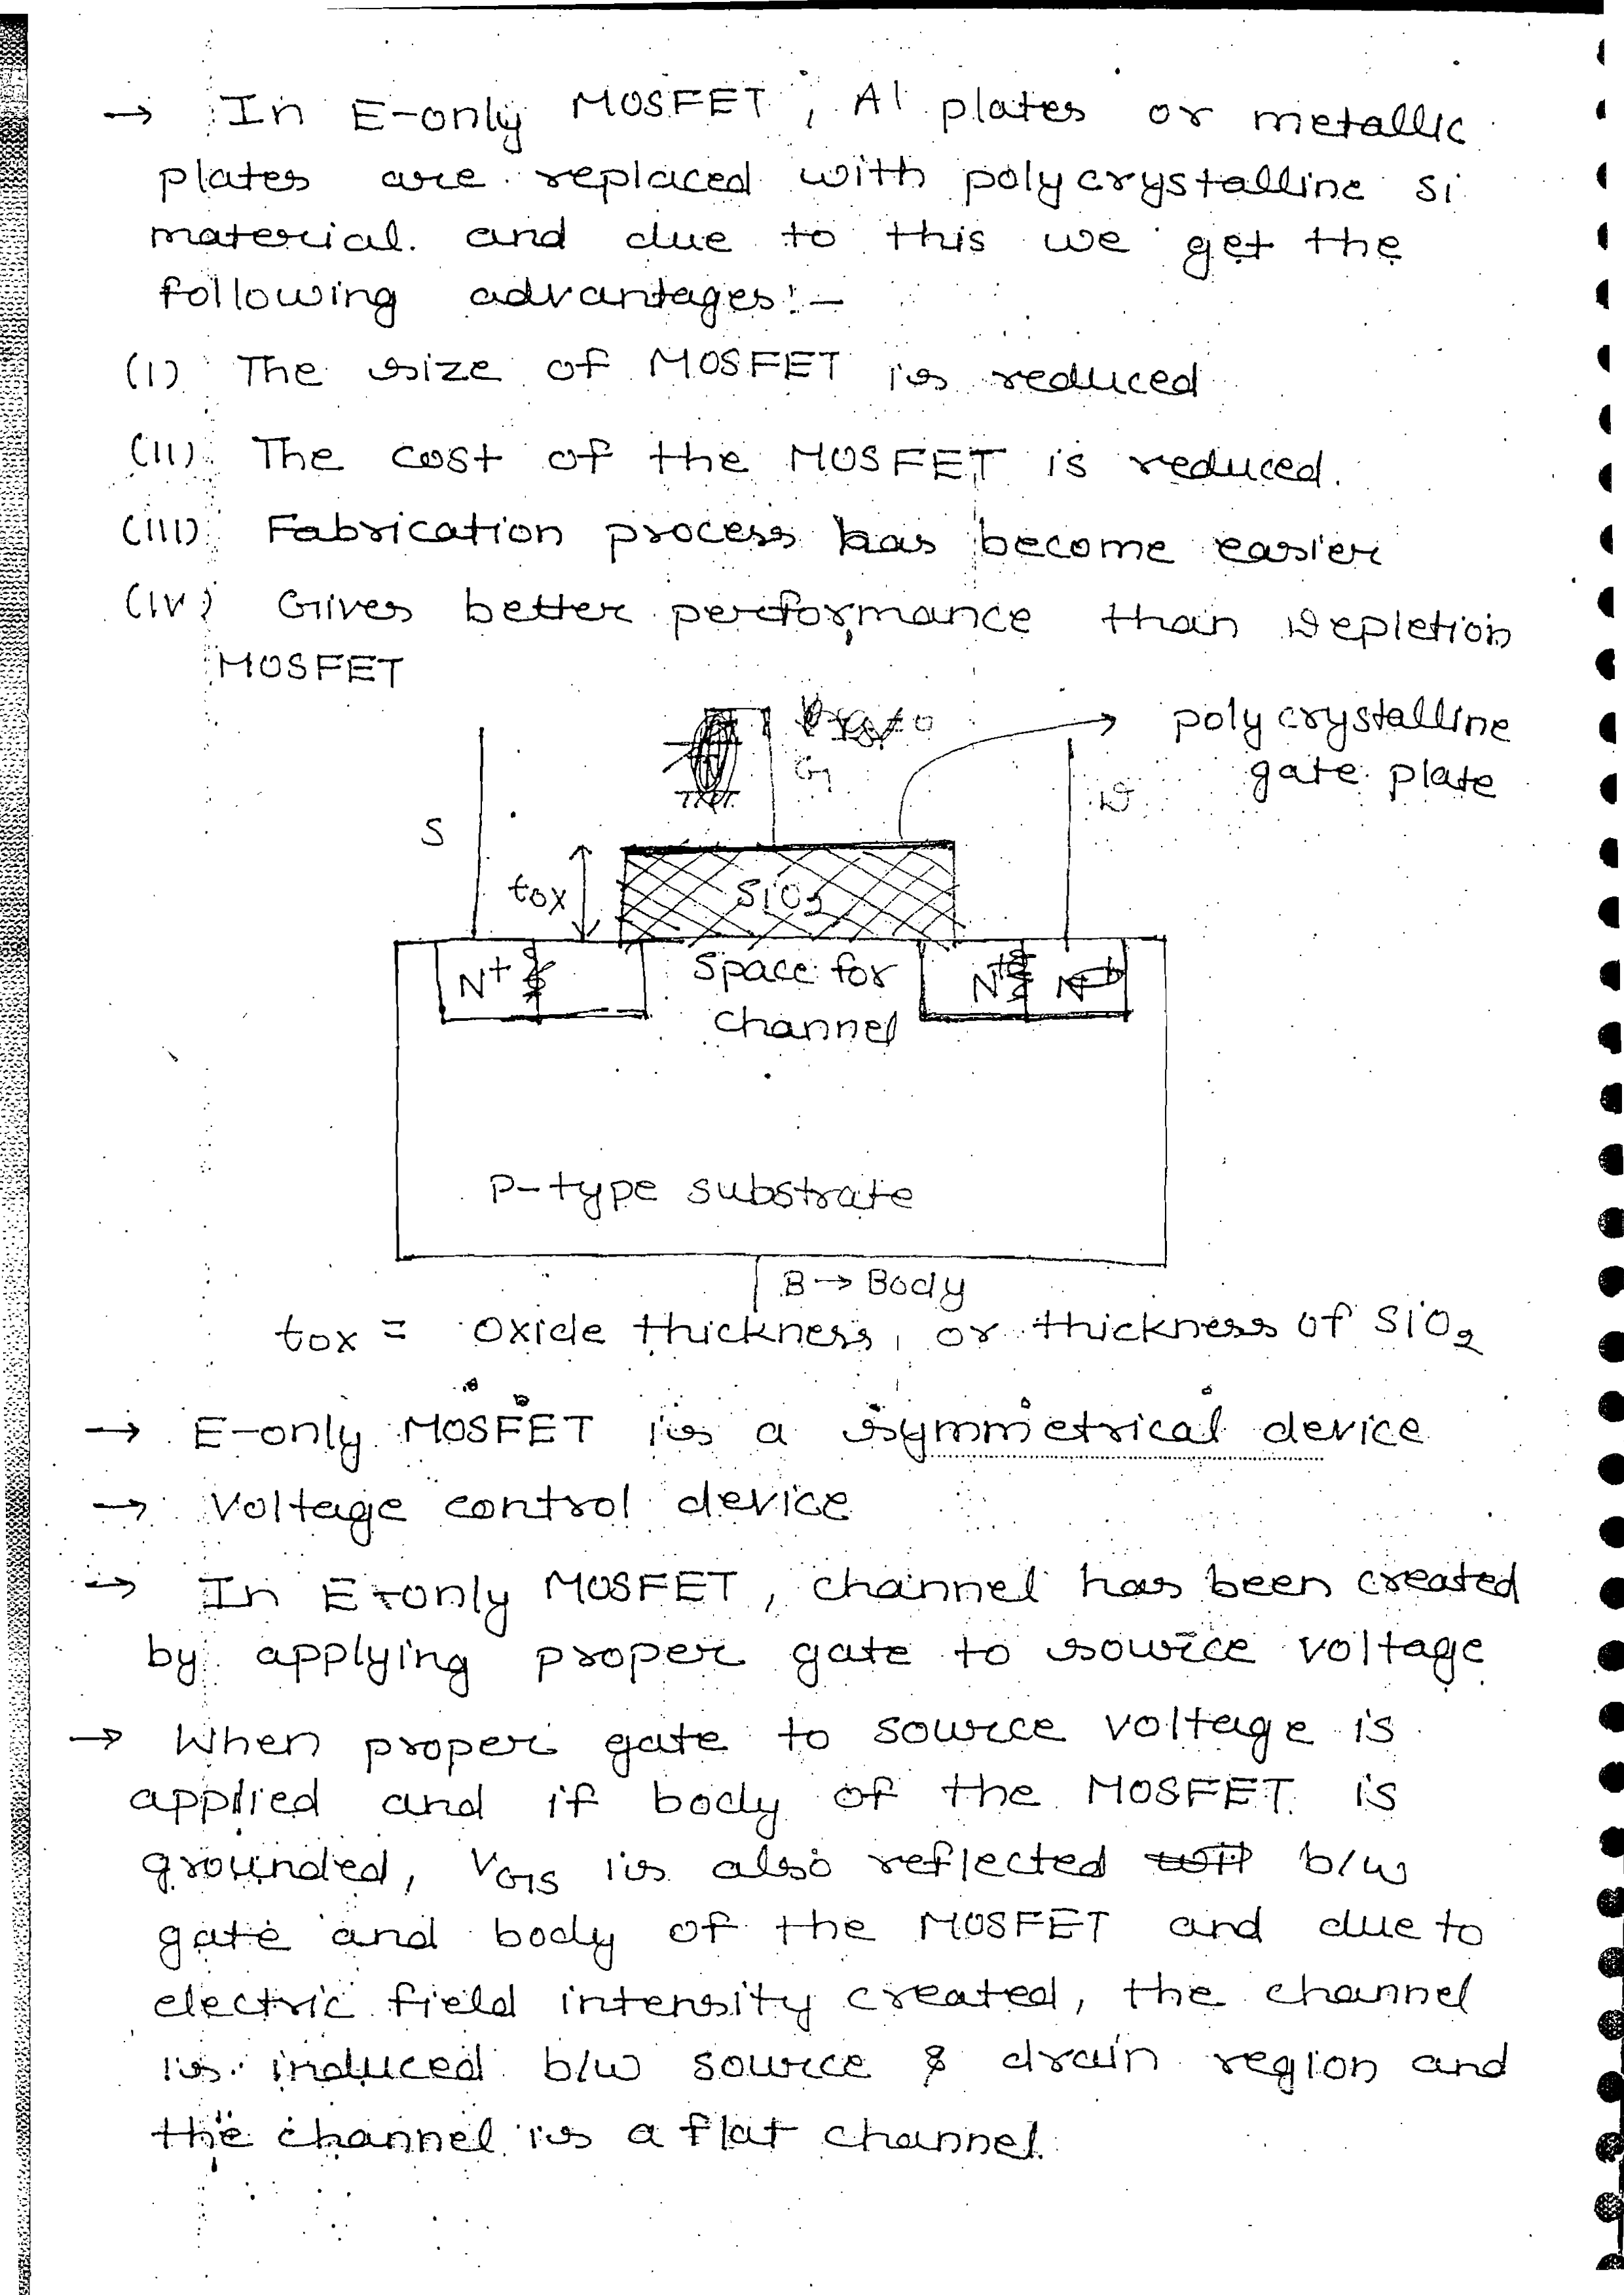 → In E-only MOSFET, Al plates or metallic
plates are replaced with polycrystalline Si
material. and due to this we get the
following advantages:-
(I) The size of MOSFET is reduced
(II) The cost of the MOSFET is reduced.
(III) Fabrication process has become easier
(IV) Gives better performance than Depletion
MOSFET
polycrystalline
gate plate
G
D
S
tox
SiO2
N+
Space for
channel
N+
P-type substrate
B → Body
tox = oxide thickness, or thickness of SiO2
→ E-only MOSFET is a symmetrical device
→ Voltage control device
→ In E-only MOSFET, channel has been created
by applying proper gate to source voltage
→ When proper gate to source voltage is
applied and if body of the MOSFET is
grounded, VGS is also reflected b/w
gate and body of the MOSFET and due to
electric field intensity created, the channel
is induced b/w source & drain region and
the channel is a flat channel.